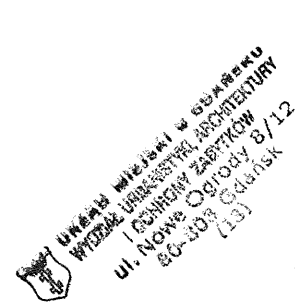 URZĄD MIEJSKI W GDAŃSKU
WYDZIAŁ URBANISTYKI, ARCHITEKTURY
I OCHRONY ZABYTKÓW
ul. Nowe Ogrody 8/12
80-803 Gdańsk
(13)